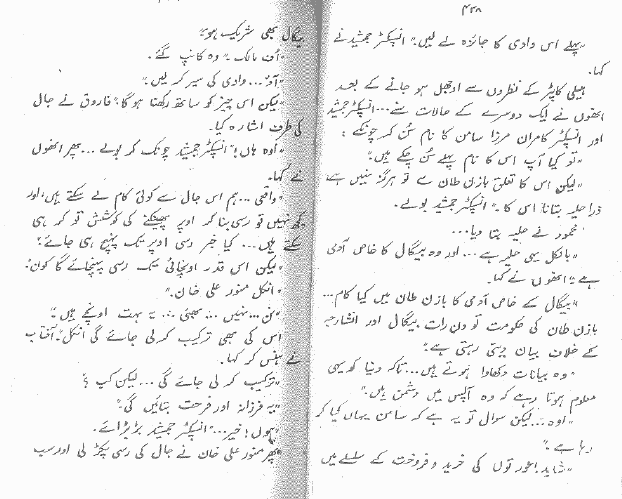 ۴۳۸
"پہلے اس وادی کا جائزہ لے لیں۔" انسپکٹر جمشید نے
کہا۔
ہیلی کاپٹر کے نظروں سے اوجھل ہو جانے کے بعد
انھوں نے ایک دوسرے کے حالات سنے... انسپکٹر جمشید
اور انسپکٹر کامران مرزا سامن کا نام سن کر چونکے :
"تو کیا آپ اس کا نام پہلے سن چکے ہیں؟"
"لیکن اس کا تعلق بازن طان سے تو ہرگز نہیں ہے
ذرا حلیہ بتانا اس کا۔" انسپکٹر جمشید بولے۔
محمود نے حلیہ بتا دیا...
"بالکل یہی حلیہ ہے... اور وہ بیگال کا خاص آدمی
ہے" انھوں نے کہا۔
"بیگال کے خاص آدمی کا بازن طان میں کیا کام...
بازن طان کی حکومت تو دن رات بیگال اور انشارجہ
کے خلاف بیان دیتی رہتی ہے"
"وہ بیانات دکھاوا ہوتے ہیں... تاکہ دنیا کو یہی
معلوم ہوتا رہے کہ وہ آپس میں دشمن ہیں"
"اوہ... لیکن سوال تو یہ ہے کہ سامن یہاں کیا کر
رہا ہے۔"
"شاید عورتوں کی خرید و فروخت کے سلسلے میں
بیگال بھی شریک ہو"
"اُف مالک" وہ کانپ گئے۔
"آؤ... وادی کی سیر کر لیں۔"
"لیکن اس چیز کو ساتھ رکھنا ہو گا" فاروق نے جال
کی طرف اشارہ کیا۔
"اوہ ہاں" انسپکٹر جمشید چونک کر بولے... پھر انھوں
نے کہا۔
"واقعی... ہم اس جال سے کوئی کام لے سکتے ہیں، اور
کچھ نہیں تو رسی بنا کر اوپر پھینکنے کی کوشش تو کر ہی
سکتے ہیں... کیا خبر رسی اوپر تک پہنچ ہی جائے؟
"لیکن اس قدر اونچائی تک رسی پہنچائے گا کون؟
"انکل منور علی خان۔"
"نن... نہیں... بھئی... یہ بہت اونچے ہیں"
"اس کی بھی ترکیب کر لی جائے گی انکل" آفتاب
نے ہنس کر کہا۔
"ترکیب کر لی جائے گی... لیکن کیا ؟
"یہ فرزانہ اور فرحت بتائیں گی"
"ہوں! خیر..." انسپکٹر جمشید بڑبڑائے۔
پھر منور علی خان نے جال کی رسی پکڑ لی اور سب